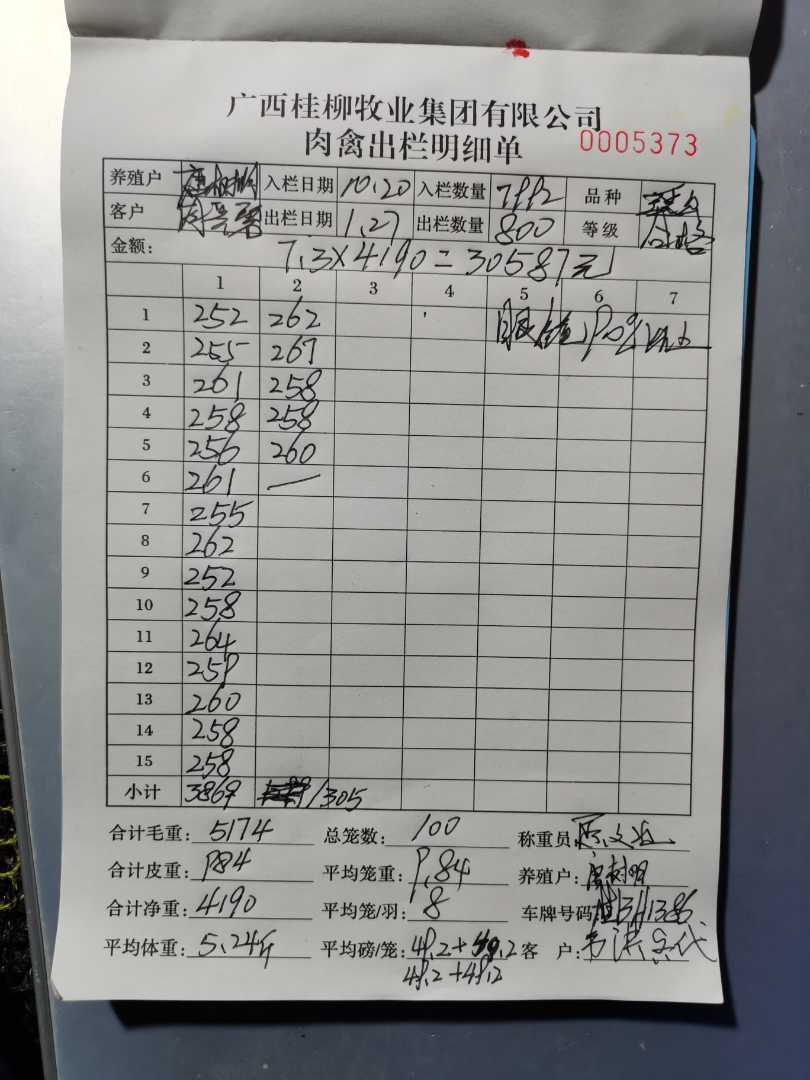 广西桂柳牧业集团有限公司
肉禽出栏明细单 0005373
养殖户 入栏日期 10.20 入栏数量 品种
客户 出栏日期 1.27 出栏数量 800 等级 合格
金额: 7.3×4190=30587元
1 2 3 4 5 6 7
1 252 262
2 255 267
3 261 258
4 258 258
5 256 260
6 261 —
7 255
8 262
9 252
10 258
11 264
12 259
13 260
14 258
15 258
小计 3869 1305
合计毛重: 5174 总笼数: 100 称重员
合计皮重: 984 平均笼重: 9.84 养殖户:
合计净重: 4190 平均笼/羽: 8 车牌号码
平均体重: 5.24斤 平均磅/笼: 49.2+49.2 客 户:
49.2+49.2